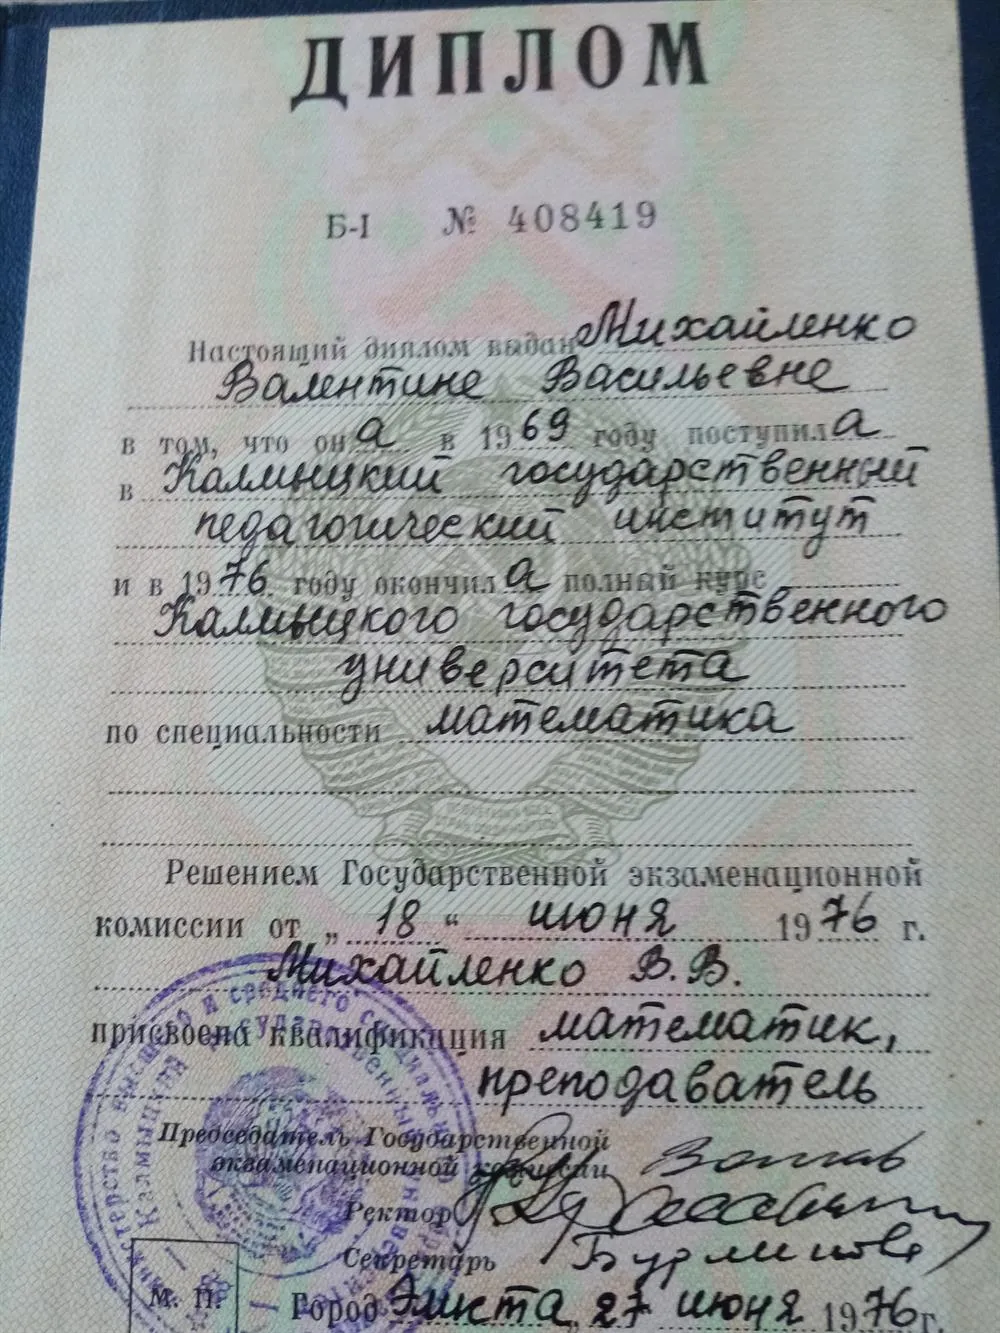 ДИПЛОМ
Б-I № 408419
Настоящий диплом выдан Михайленко
Валентине Васильевне
в том, что она в 1969 году поступила
в Калмыцкий государственный
педагогический институт
и в 1976 году окончила полный курс
Калмыцкого государственного
университета
по специальности математика
Решением Государственной экзаменационной
комиссии от „18“ июня 1976 г.
Михайленко В.В.
присвоена квалификация математик,
преподаватель
Председатель Государственной
экзаменационной комиссии
Ректор
Секретарь
М. П.
Город Элиста, 27 июня 1976 г.